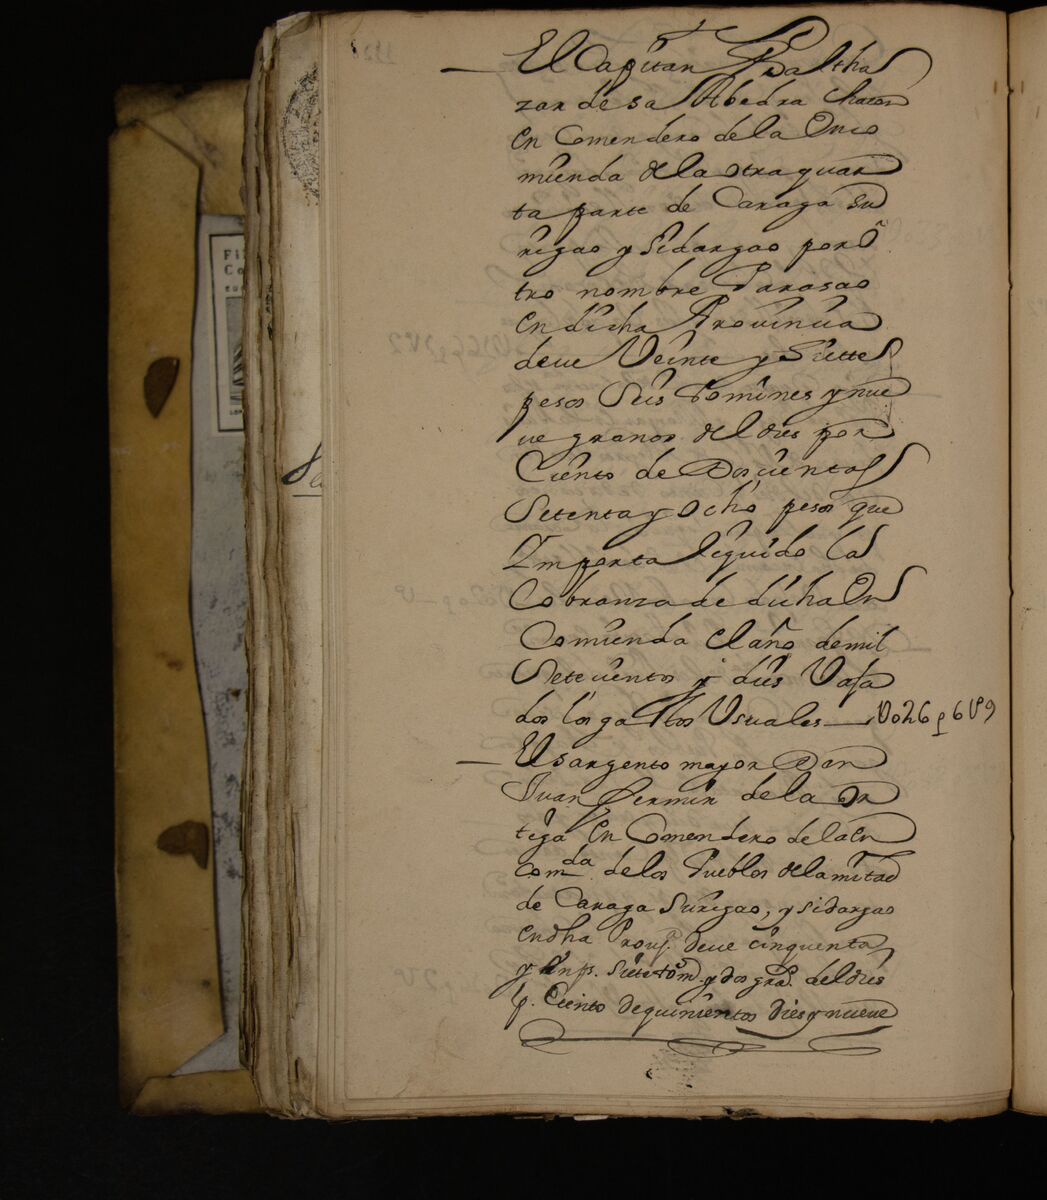 El Capitan Baltha
zar de sa Abedra chacon
en Comendero de la Enco
mienda de la otra quar
ta parte de Caraga su
rigao y Sidargao por o
tro nombre Parasao
en dicha Provincia
deve Veinte y Siette
pesos Seis tomines y nue
ve granos del dies por
Ciento de Doscientos
Setenta y ocho pesos que
Importa liquido la
Cobranza de dicha En
Comienda el año de mil
Setecientos y dies Vaxa
dos los gastos Usuales
El sargento mayor Don
Juan fermin de la Or
tega en Comendero de la en
comda de los Pueblos de la mitad
de Caraga Surigao, y sidargao
en dha Prou.ª deve cinquenta
y Un ps. Siete tom.s y dos gra.s del dies
p. Ciento de quinientos dies y nueve
Fi
Co